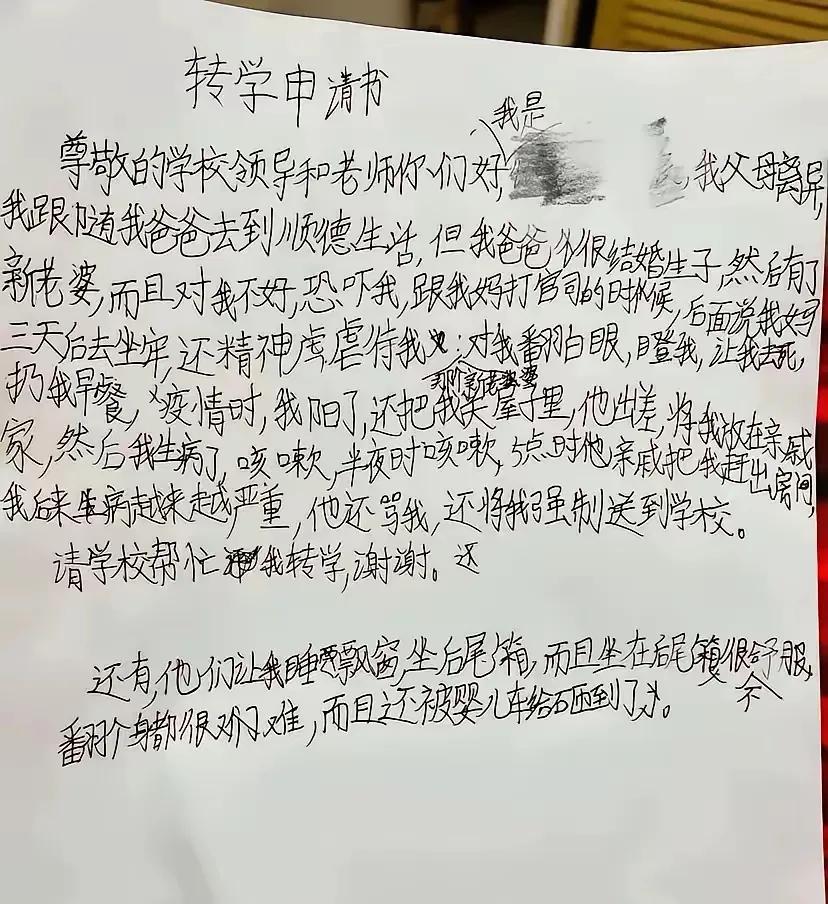 转学申请书
我是
尊敬的学校领导和老师你们好, ,我父母离异,
我跟随我爸爸去到顺德生活,但我爸爸 很结婚生子,然后有了
新老婆,而且对我不好,恐吓我,跟我妈打官司的时候,后面说我妈
三天后去坐牢,还精神虐待我:对我翻白眼,瞪我,让我去死,
扔我早餐,疫情时,我阳了,还把我关屋子里,他出差,将我放在亲戚
家,然后我生病了,咳嗽,半夜时咳嗽,5点时他亲戚把我赶出房间,
我后来生病越来越严重,他还骂我,还将我强制送到学校。
请学校帮忙我转学,谢谢。还
还有,他们让我睡飘窗,坐后尾箱,而且坐在后尾箱很不舒服,
翻个身都很难,而且还被婴儿车给砸到了。